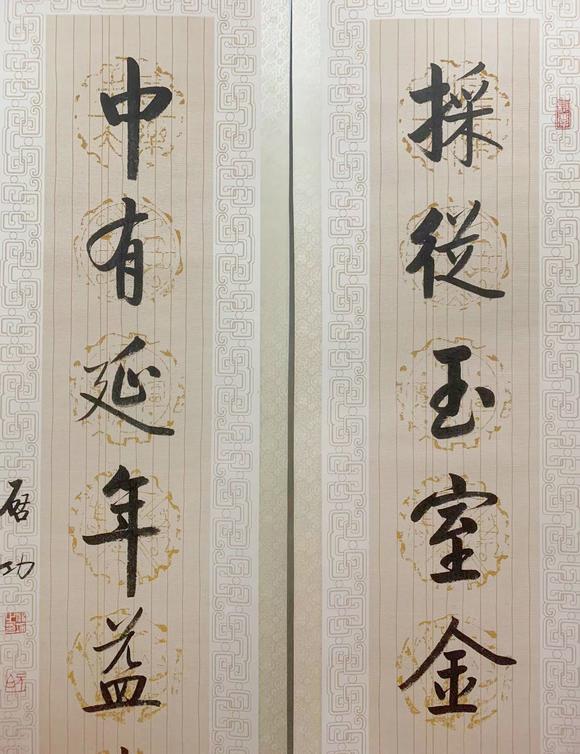 採從玉室金
中有延年益
啓功